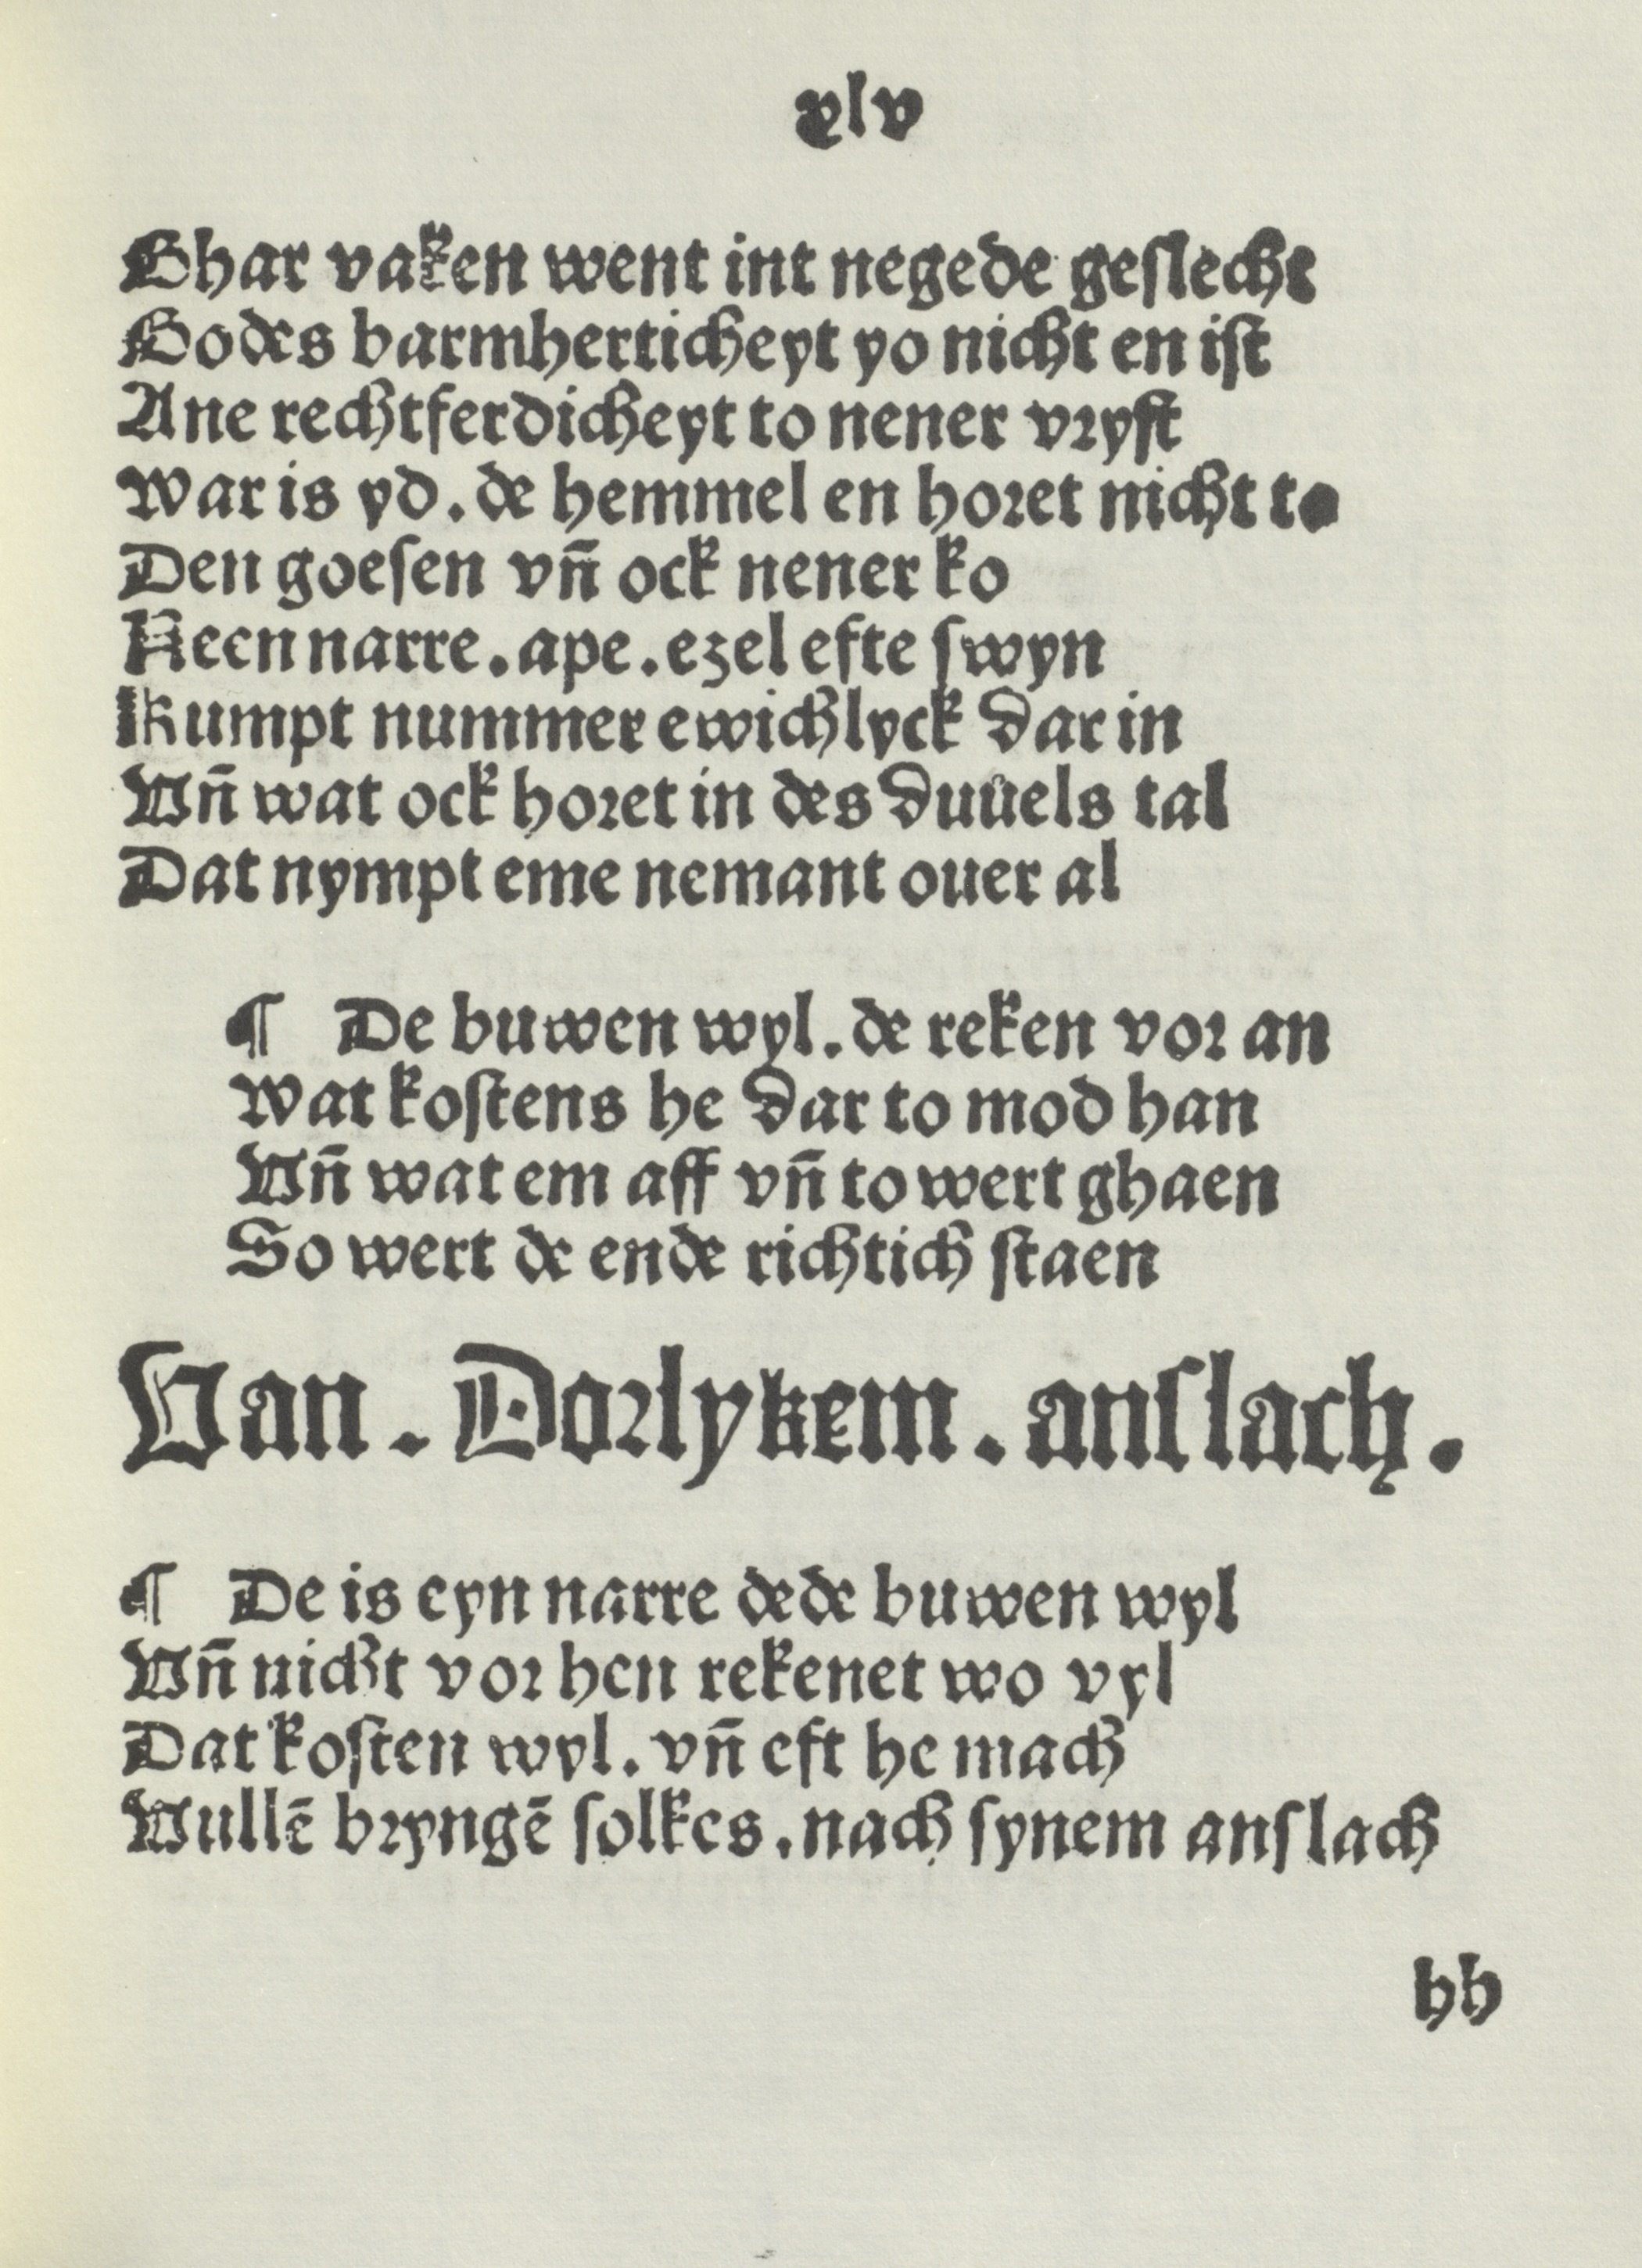 xlv
Ghar vaken went int negede geſlecht
Godes barmherticheyt yo nicht en iſt
Ane rechtferdicheyt to nener vryſt
War is yd. de hemmel en horet nicht to
Den goeſen vn̄ ock nener ko
Keen narre. ape. ezel efte ſwyn
Kumpt nummer ewichlyck dar in
Vn̄ wat ock horet in des duuͤels tal
Dat nympt eme nemant ouer al
¶ De buwen wyl. de reken vor an
Wat koſtens he dar to mod han
Vn̄ wat em aff vn̄ to wert ghaen
So wert de ende richtich ſtaen
Van. Dorlykem. anſlach.
¶ De is eyn narre dede buwen wyl
Vn̄ nicht vor hen rekenet wo vyl
Dat koſten wyl. vn̄ eft he mach
Wullē bryngē ſolkes. nach ſynem anſlach
hh